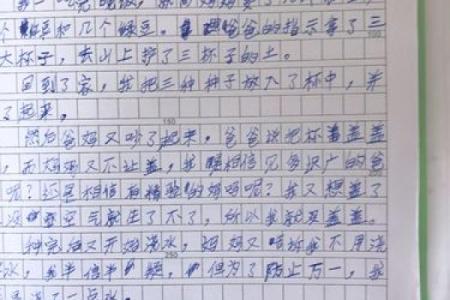 个绿豆和几个绿豆。爸爸的指示拿了三
大杯子,去山上挖了三杯子的土。
100
回到了家,我把三种种子放入了杯中,并
了起来。
150
然后爸妈又吵了起来,爸爸说把杯盖盖
而妈妈又不让盖,我相信见多识广的爸
200
呢?还是相信有经验的妈妈呢?我又想了
没空气就生了不了,所以我就没盖盖。
种完后又开始浇水,妈妈又告诉我不用浇
250
水,我半信半疑,但为了防止万一,我
是浇了一点水。